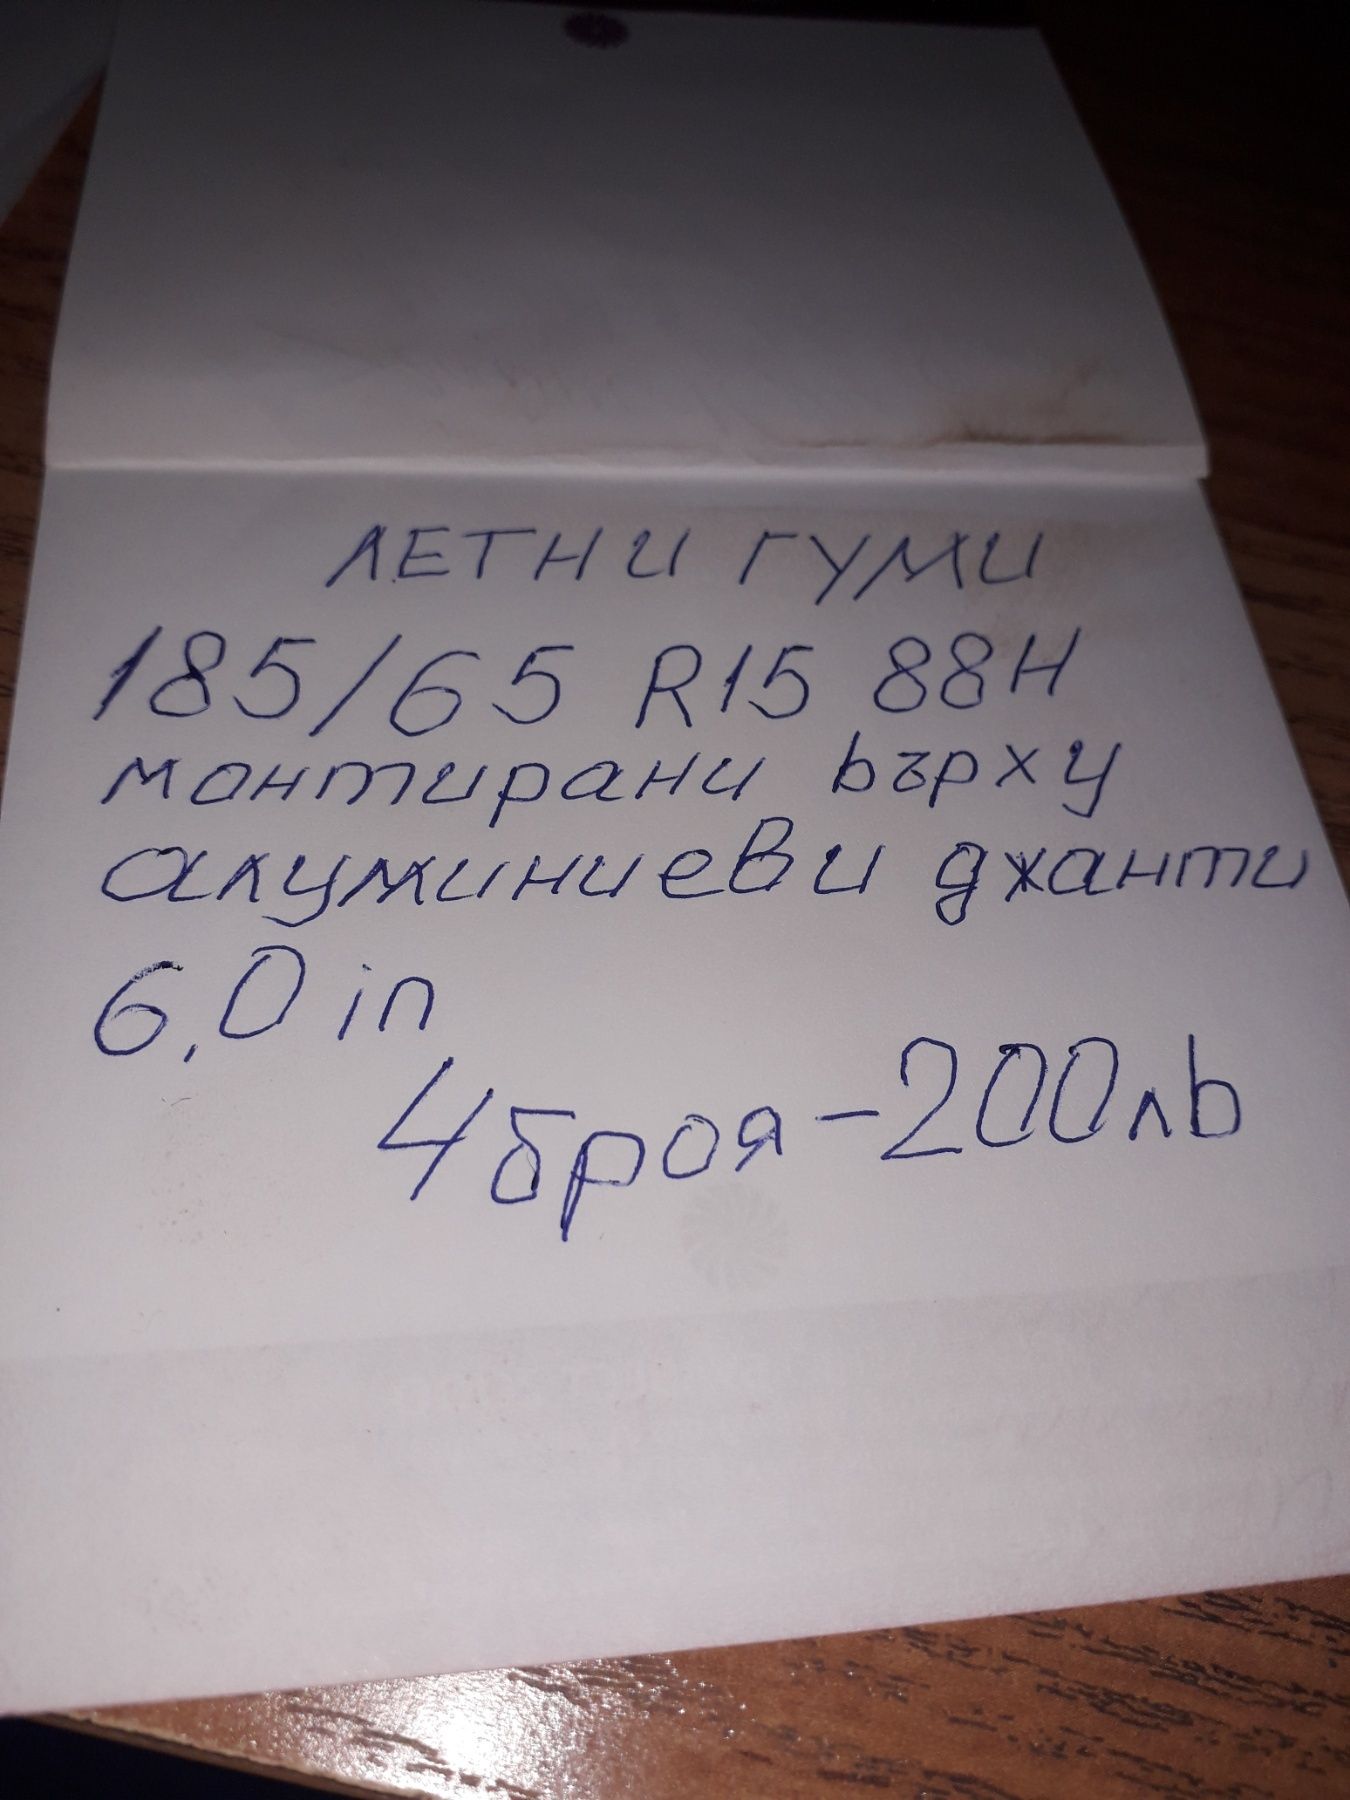 ЛЕТНИ ГУМИ
185/65 R15 88H
монтирани върху
алуминиеви джанти
6,0 in
4 броя - 200 лв